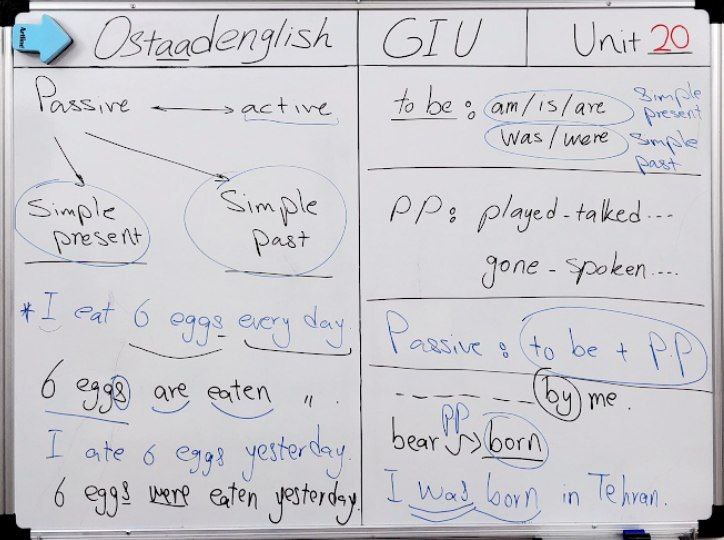 Ostaadenglish GIU Unit 20
Passive ↔ active
Simple present
Simple past
* I eat 6 eggs every day.
6 eggs are eaten 〃.
I ate 6 eggs yesterday.
6 eggs were eaten yesterday.
to be: am/is/are simple present
was/were simple past
PP: played - talked ....
gone - spoken ....
Passive: to be + P.P
_ _ _ _ _ _ by me.
PP
bear → born
I was born in Tehran.